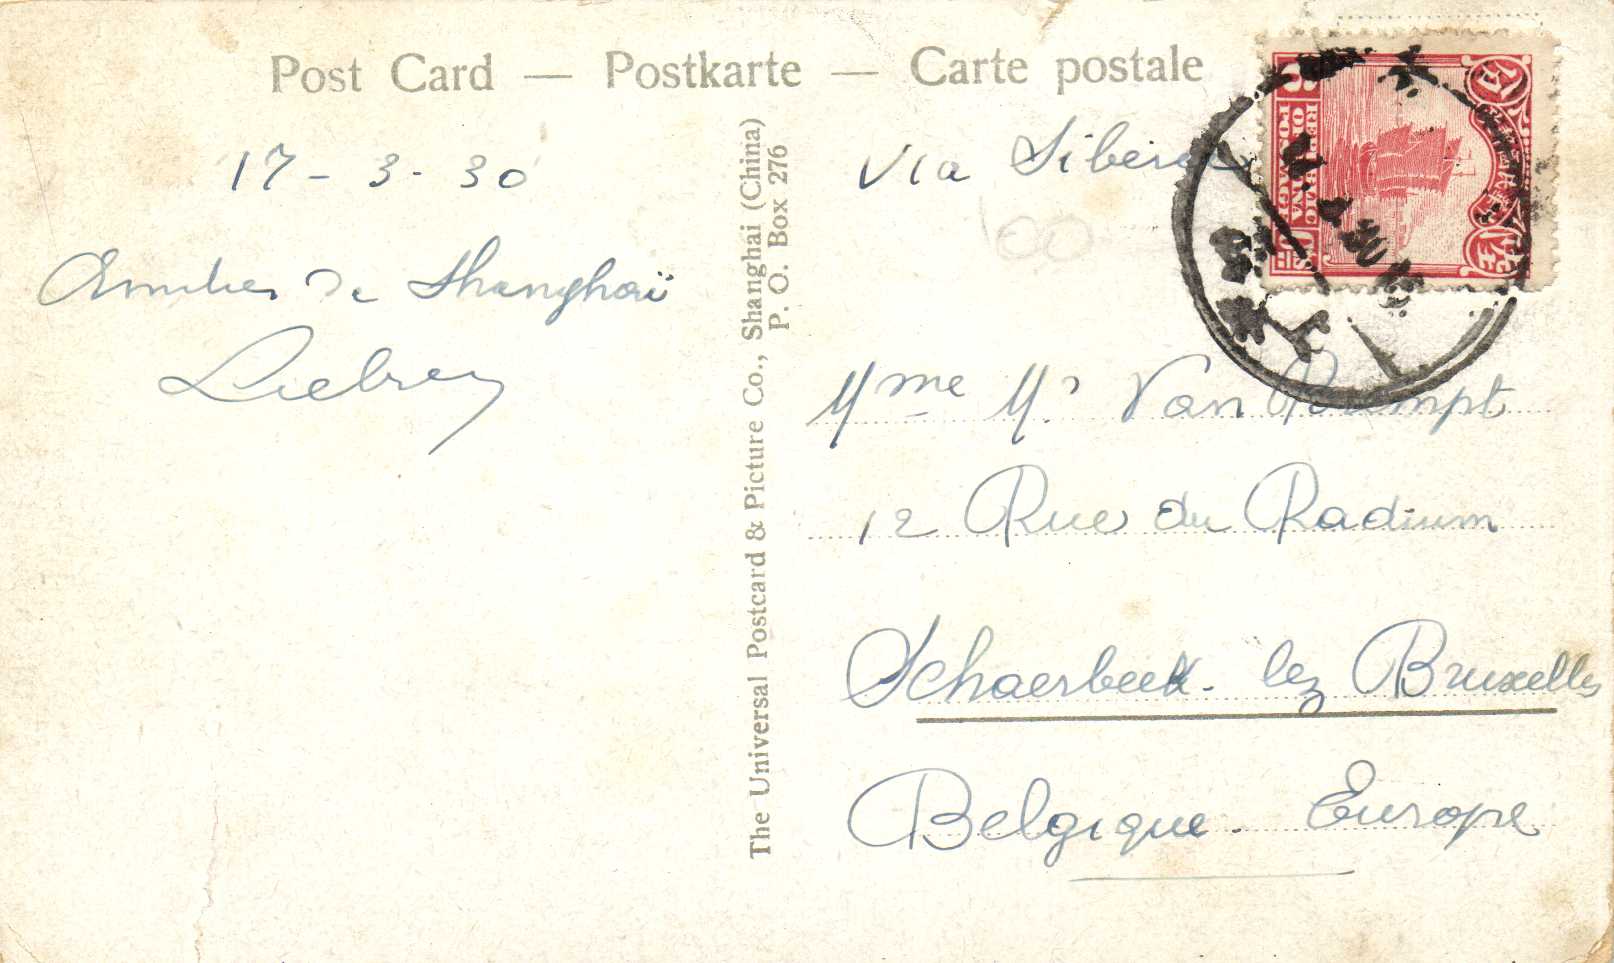 Post Card — Postkarte — Carte postale
17-3-30
Amitiés de Shanghaï
The Universal Postcard & Picture Co., Shanghai (China)
P. O. Box 276
Via Siberia
REPUBLIC
OF CHINA
POSTAGE
Mme Mce Van Rompt
12 Rue du Radium
Schaerbeek. lez Bruxelles
Belgique. Europe